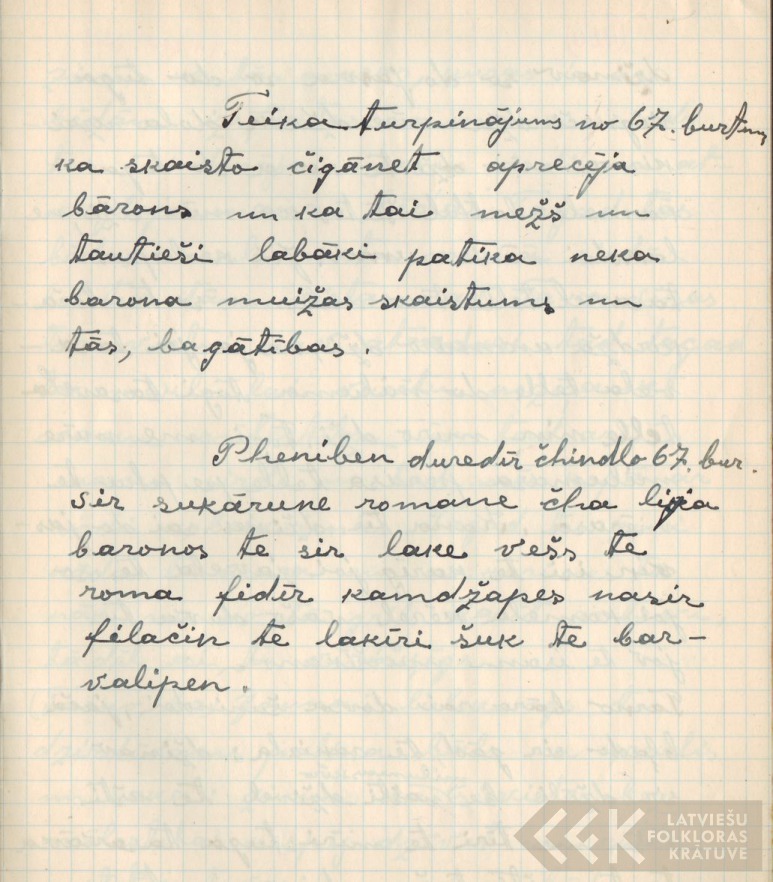 Teika turpinājums no 67. burtnu,
ka skaisto čigānet aprecēja
bārons un ka tai mežš un
tautieši labāki patika neka
barona muižas skaistums un
tās, bagātības.
Pheniben duredīr čhindlo 67. bur.
sir sukārune romane čha lija
baronos te sir lake vešs te
roma fidīr kamdžapes nasir
filačin te lakīri šuk te bar-
valipen.
LATVIEŠU
FOLKLORAS
KRĀTUVE